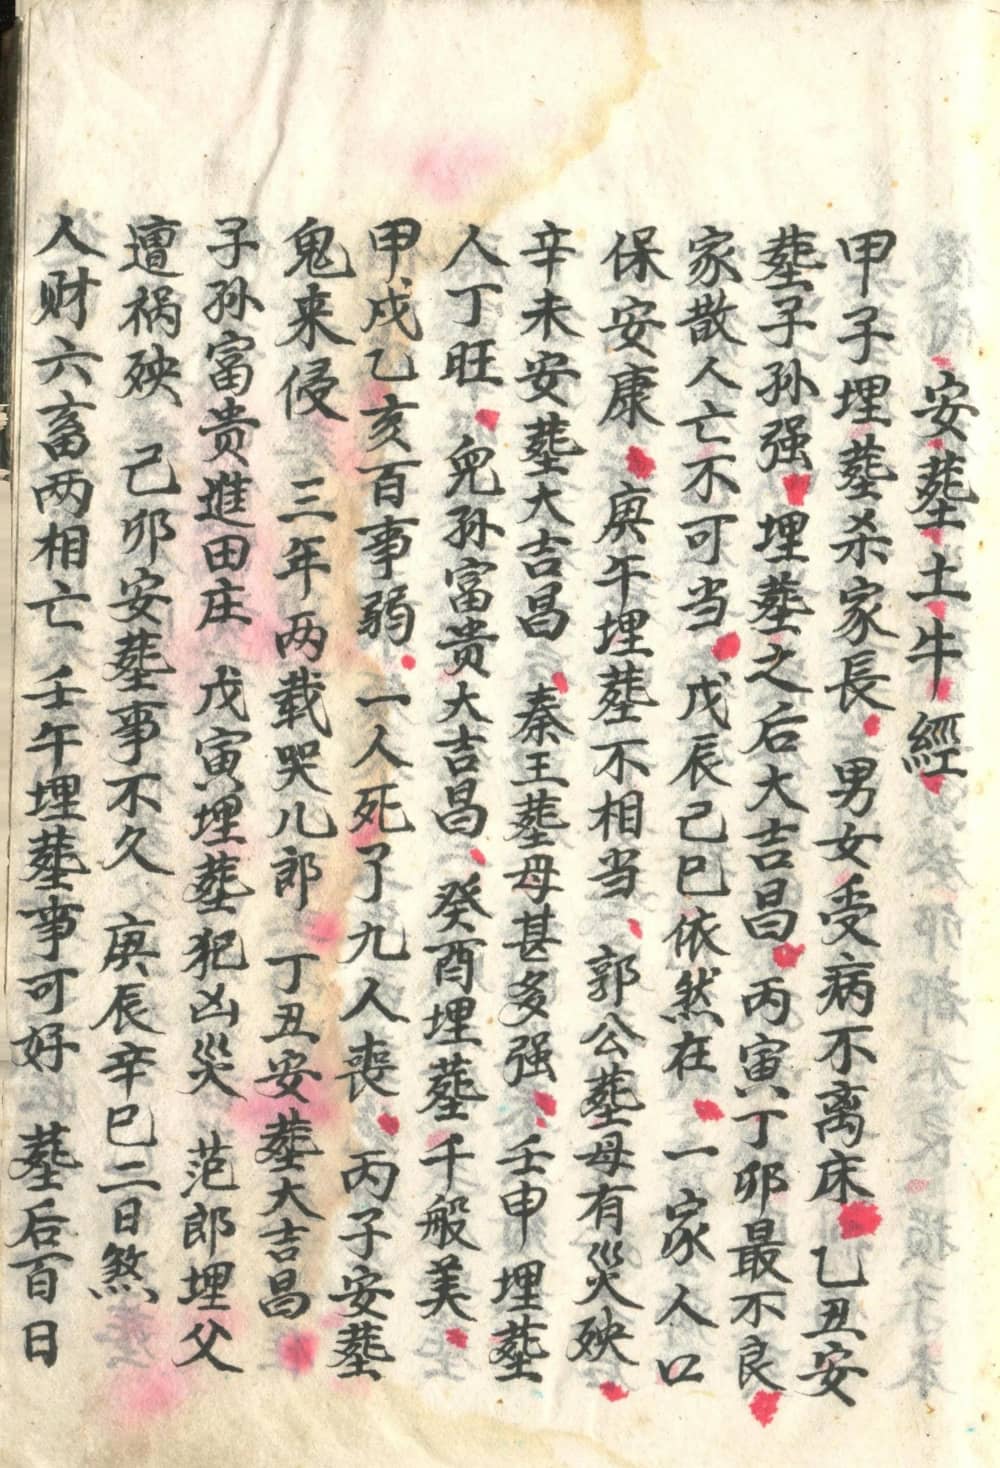 安塟土牛經
甲子埋塟杀家長 男女受病不离床 乙丑安
塟子孙强 埋塟之后大吉昌 丙寅丁卯最不良
家散人亡不可当 戊辰己巳依然在 一家人口
保安康 庚午埋塟不相当 郭公塟母有災殃
辛未安塟大吉昌 秦王塟母甚多强 壬申埋塟
人丁旺 兒孙富贵大吉昌 癸酉埋塟千般美
甲戌乙亥百事弱 一人死了九人喪 丙子安塟
鬼来侵 三年两载哭儿郎 丁丑安塟大吉昌
子孙富贵進田庄 戊寅埋塟犯凶災 范郎埋父
遭祸殃 己卯安塟事不久 庚辰辛巳二日煞
人财六畜两相亡 壬午埋塟事可好 塟后百日